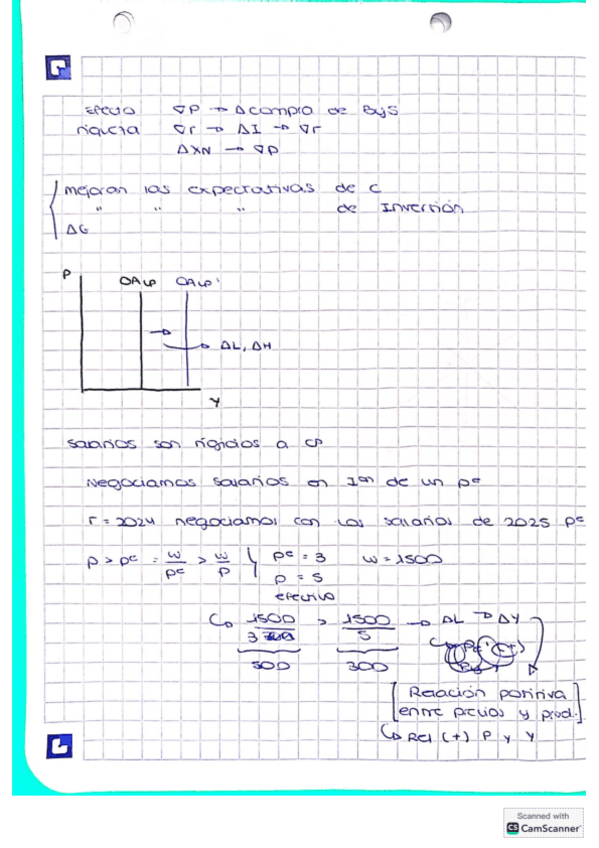 Efecto ∇P → Δ compra de ByS
riqueza ∇r → ΔI → ∇r
ΔXN → ∇P
mejoran las expectativas de C
" " " de Inversión
ΔG
P
OALP OALP'
→ ΔL, ΔH
Y
Salarios son rígidos a CP
Negociamos salarios en 1ªn de un Pe
r = 2024 negociamos con los salarios de 2025 Pe
P > Pe = W/Pe > W/P Pe = 3 W = 1500
P = 5
efectivo
1500/3 > 1500/5 → ΔL → ΔY
500 300
[Relación positiva
entre precios y prod.]
Rel (+) P y Y
Scanned with
CS CamScanner